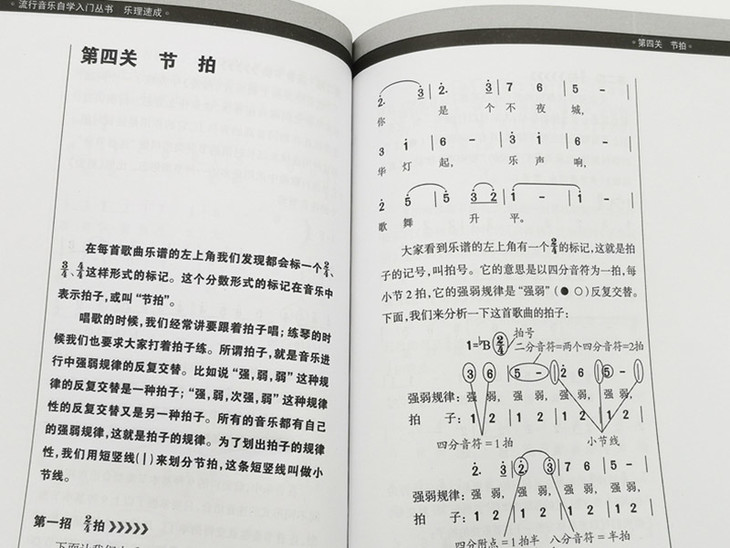 流行音乐自学入门丛书 乐理速成
第四关 节 拍
在每首歌曲乐谱的左上角我们发现都会标一个2/4、
3/4、4/4这样形式的标记。这个分数形式的标记在音乐中
表示拍子,或叫“节拍”。
唱歌的时候,我们经常讲要跟着拍子唱;练琴的时
候我们也要求大家打着拍子练。所谓拍子,就是音乐进
行中强弱规律的反复交替。比如说“强,弱,弱”这种规
律的反复交替是一种拍子;“强,弱,次强,弱”这种规律
性的反复交替又是另一种拍子。所有的音乐都有自己
的强弱规律,这就是拍子的规律。为了划出拍子的规律
性,我们用短竖线(|)来划分节拍,这条短竖线叫做小
节线。
第一招 2/4拍》》》》》
第四关 节拍
2. 3 | 2. 3 | 7 6 | 5 - |
你 是 个 不 夜 城,
3 1 | 6 - | 3 1 | 6 - |
华 灯 起, 乐 声 响,
2 5 | 5 3 2 | 1 - | 1 - |
歌 舞 升 平。
大家看到乐谱的左上角有一个2/4的标记,这就是拍
子的记号,叫拍号。它的意思是以四分音符为一拍,每
小节2拍,它的强弱规律是“强弱”(● ○)反复交替。
下面,我们来分析一下这首歌曲的拍子:
拍号
1=♭B 2/4 二分音符=两个四分音符=2拍
3 6 | 5 - | 2 6 | 5 - |
强弱规律:强 弱, 强 弱, 强 弱, 强 弱,
拍 子:1 2 | 1 2 | 1 2 | 1 2 |
四分音符=1拍 小节线
2. 3 | 2. 3 | 7 6 | 5 - |
强弱规律:强 弱, 强 弱, 强 弱, 强 弱,
拍 子:1 2 | 1 2 | 1 2 | 1 2 |
四分附点=1拍半 八分音符=半拍